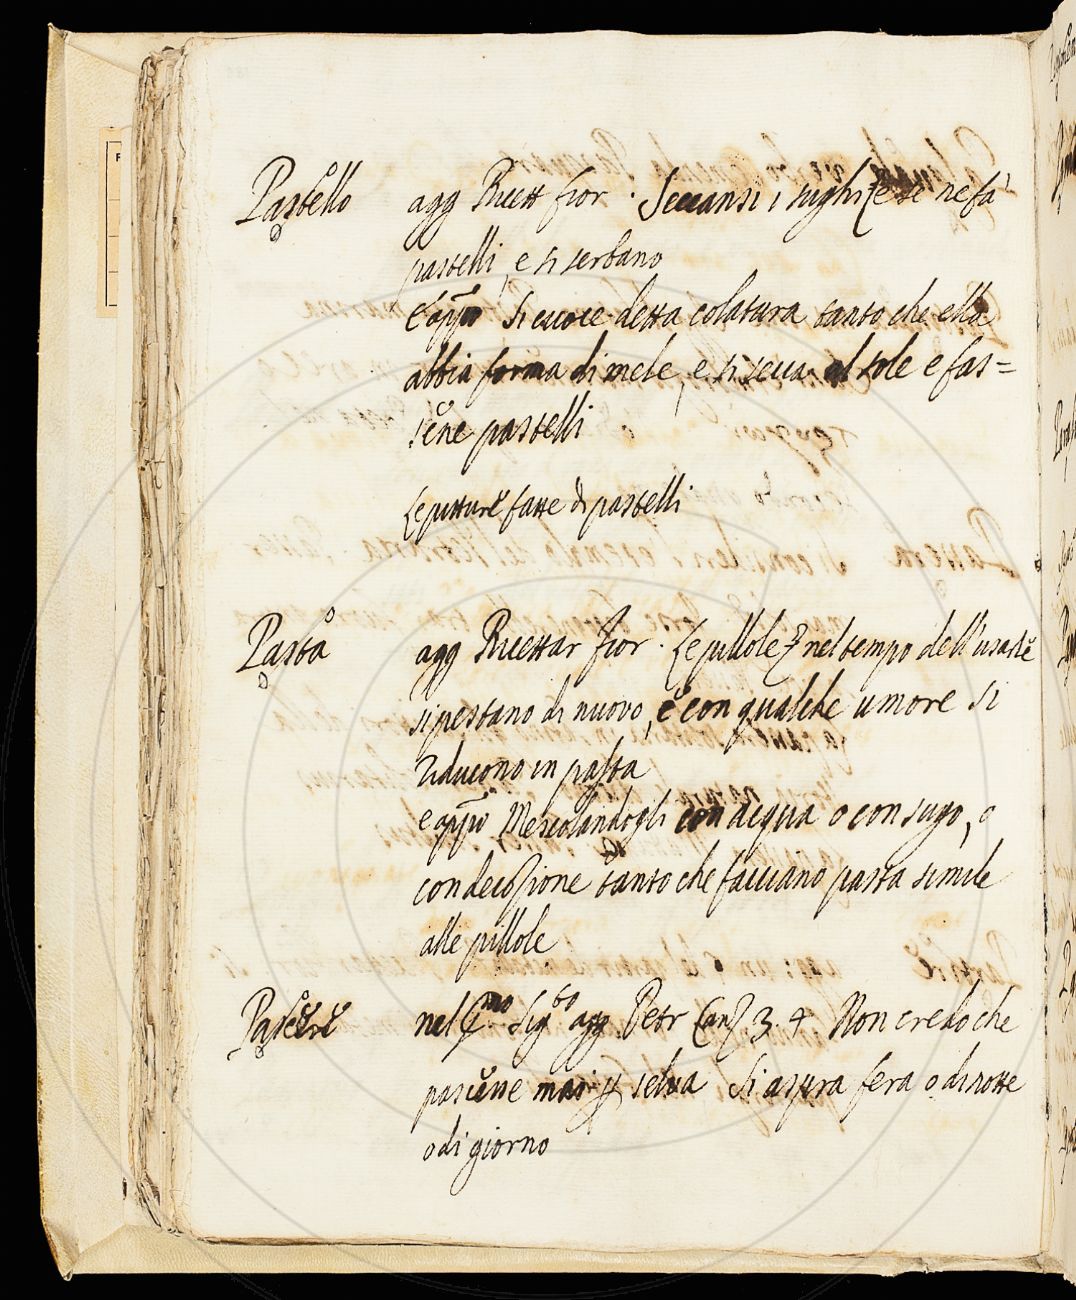 Pastello agg Ricett fior. Seccansi i sughi e se ne fà
pastelli, e si serbano
e appo Si cuoce detta colatura tanto che ella
abbia forma di mele, e si secca al sole e fas=
sène pastelli
Le pitturè fatte di pastelli
Pasta agg Ricettar fior. Le pillole nel tempo dell'usarlè
si pestano di nuovo, è con qualche umore si
riducono in pasta
e appo Mescolandogli con acqua o con sugo, o
con decozione tanto che facciano pasta simile
alle pillole
Pascèrè nel pmo sigto agg Petr Canz 3. 4 Non credo che
pascèsse mai p selva Si aspra fera o di notte
o di giorno